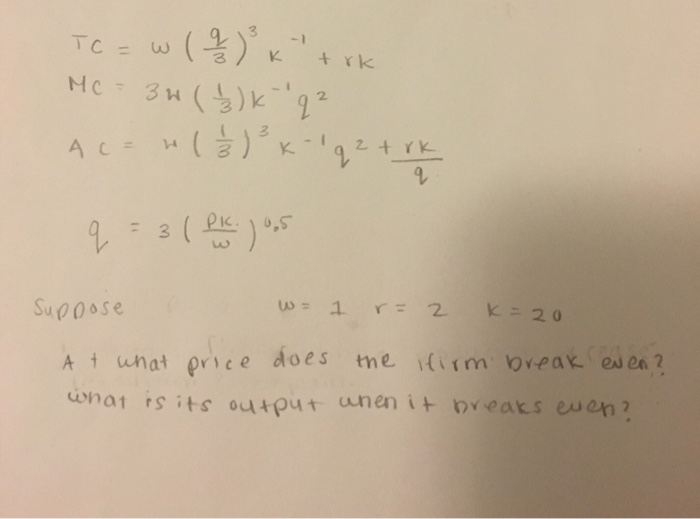 TC = w (q/3)³ k⁻¹ + rk
MC = 3w (1/3) k⁻¹ q²
AC = w (1/3)³ k⁻¹ q² + rk/q
q = 3 (PK/w)^0.5
Suppose w = 1 r = 2 k = 20
At what price does the firm break even?
what is its output when it breaks even?